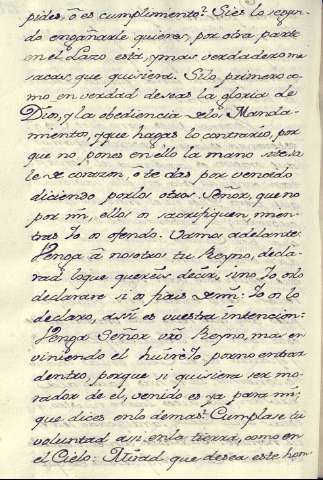 pides, ó es cumplimiento? Si es lo segun-
do engañarle quieres, por otra parte
en el Lazo está, y mas verdadero me
sacas, que quisiera. Si lo primero co-
mo en verdad deseas la gloria de
Dios, y la obediencia de los Manda-
mientos, y que hagas lo contrario, por
que no pones en ello la mano si te sa-
le de corazon, ó te das por vencido
diciendo por los otros: Señor, que no
por mi, ellos os sacrifiquen, mien-
tras Yo os ofendo. Vamos adelante:
Venga á nosotros tu Reyno, decla-
rad lo que quereis decir, sino Yo os lo
declarare si os fiais de mi: Yo os lo
declaro, assi es vuestra intencion:
Venga Señor vro. Reyno, mas en
viniendo él huire Yo, por no entrar
dentro, porque si quisiera ser mo-
rador de el, venido es ya para mi;
que dices en lo demas? Cumplase tu
voluntad asi en la tierra, como en
el Cielo: Mirad que desea este hom